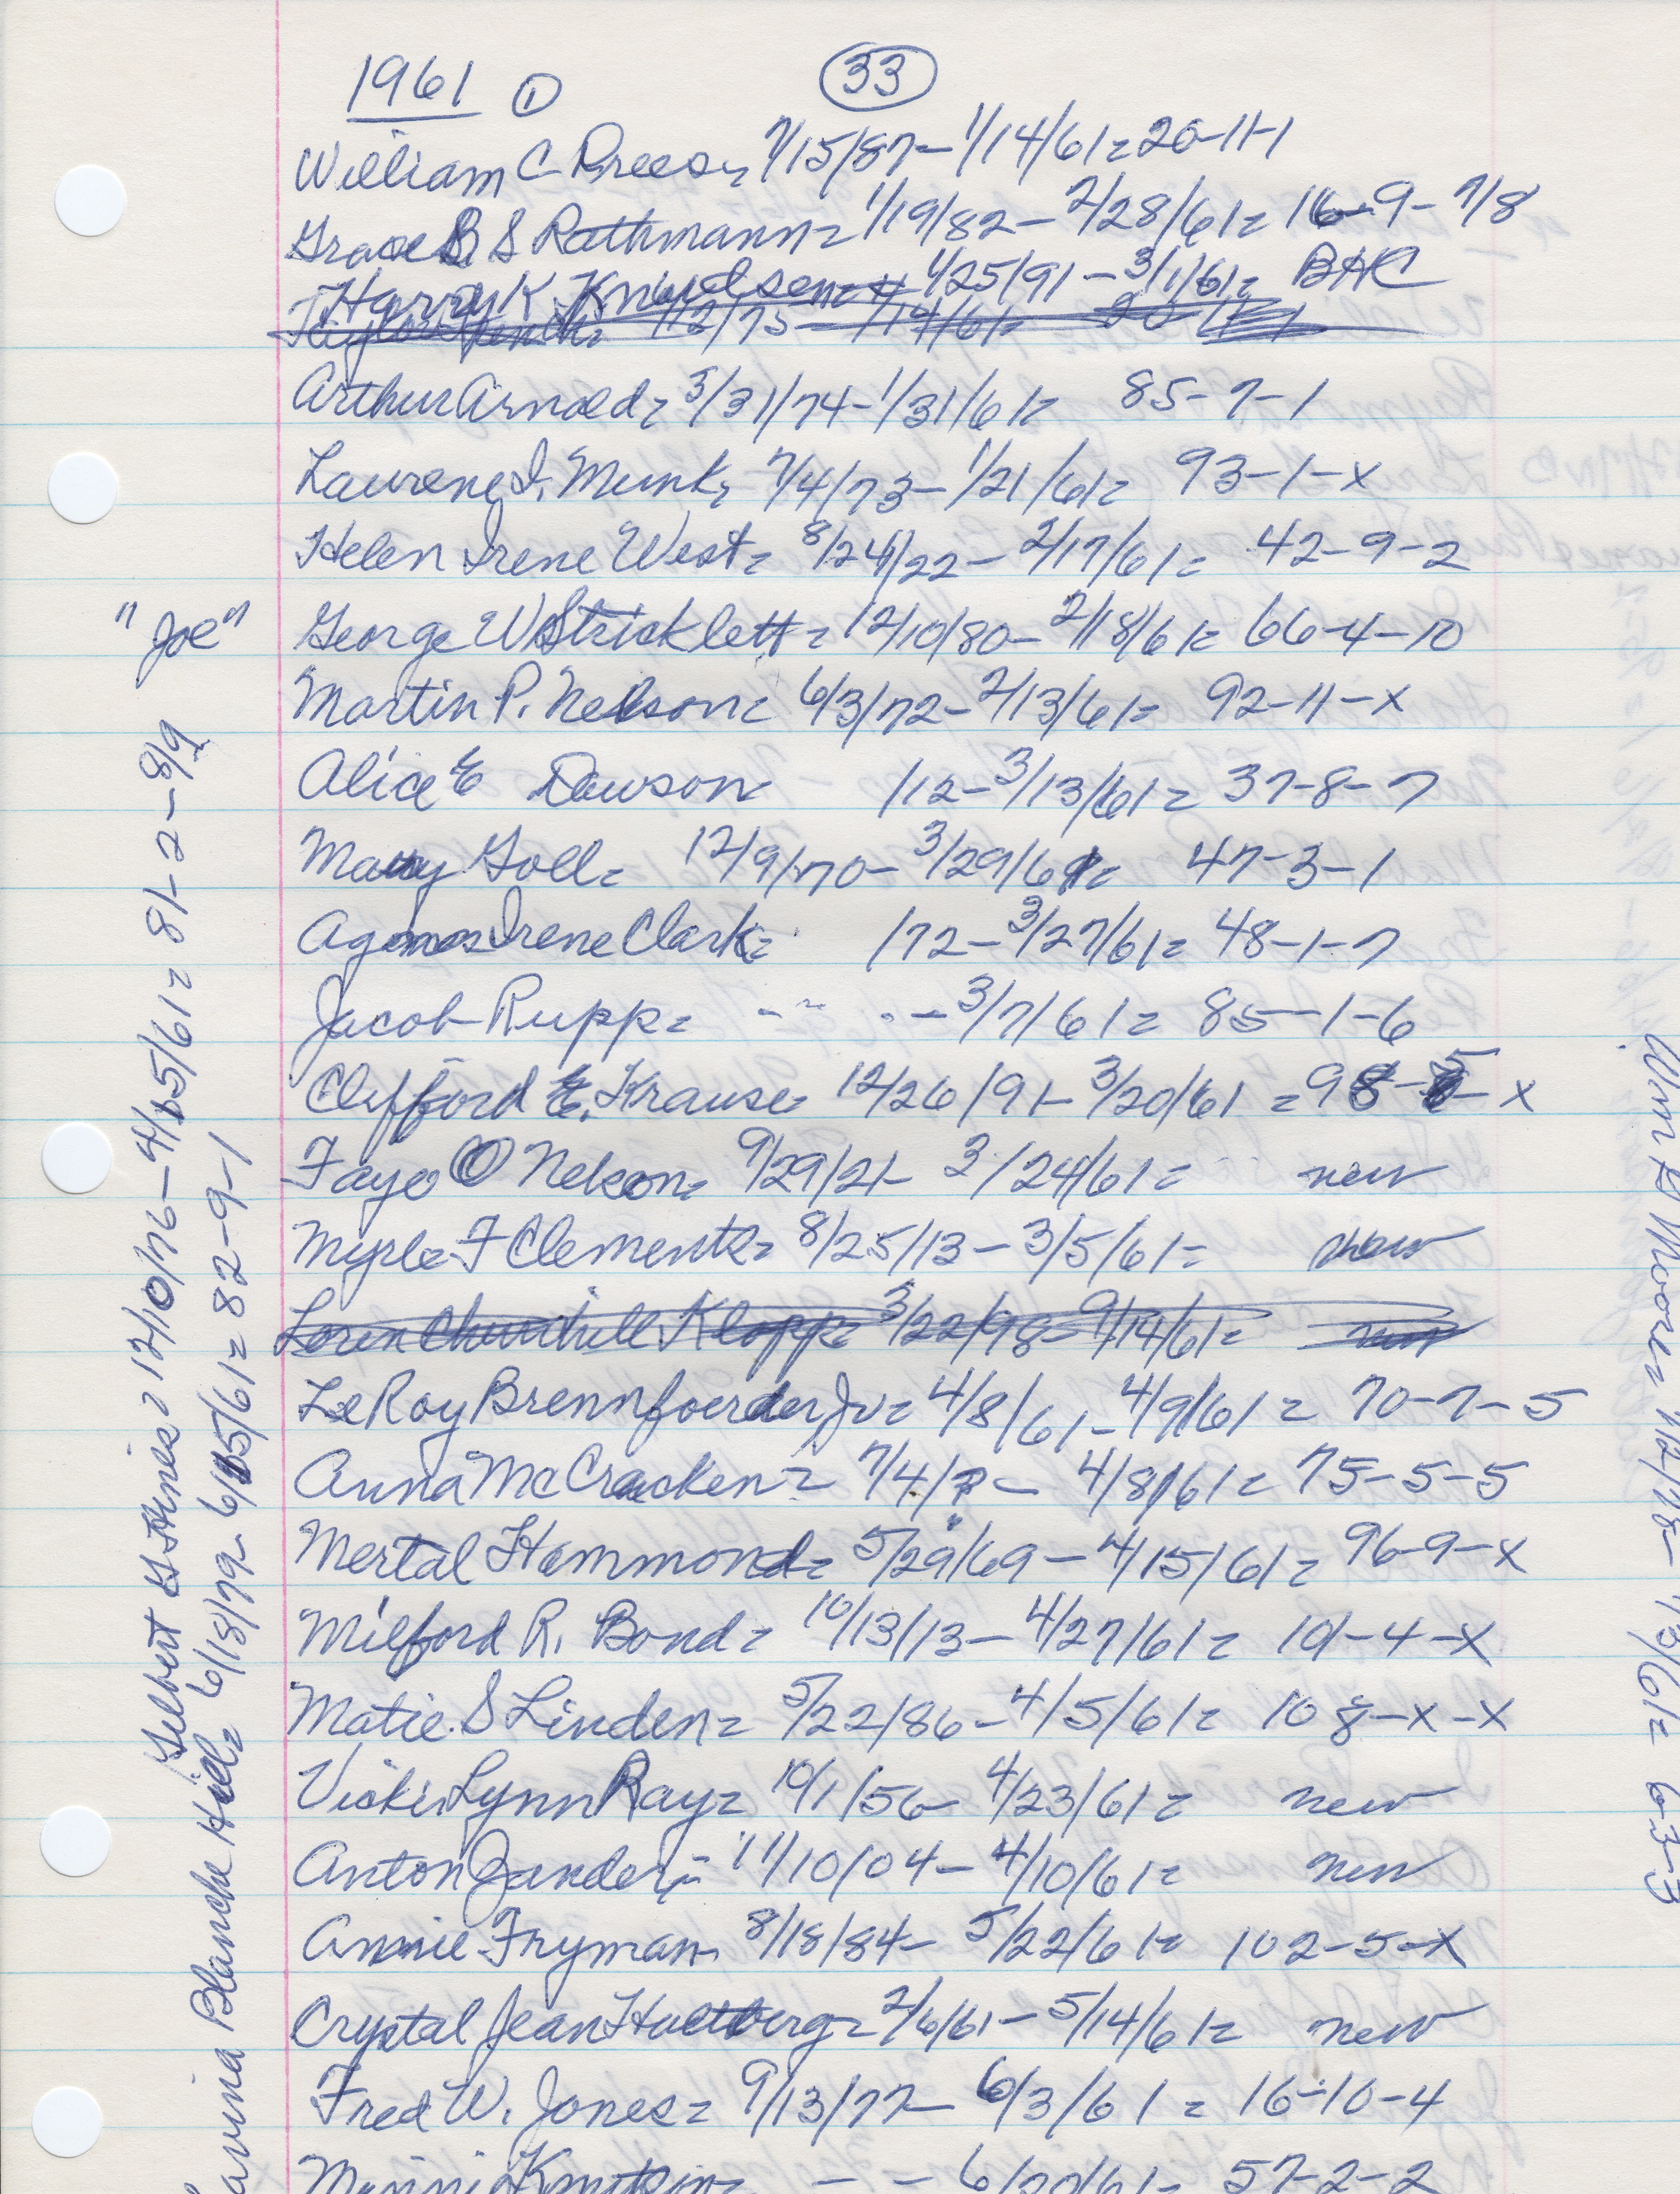 1961 ① 33
William C Brees, 7/15/87- 1/14/61= 20-11-1
Grace B. S Rathmann= 1/19/82- 2/28/61= 16-9- 7/8
Harry K. Knudsen= 1/25/91- 3/1/61= BHC
1/12/75- 1/14/61=
Arthur Arnold= 3/31/74- 1/31/61= 85-7-1
Laurene I. Munk, 7/4/73- 1/21/61= 93-1-x
Helen Irene West= 8/24/22- 2/17/61= 42-9-2
"Joe" George W Stricklett= 12/10/80- 2/18/61= 66-4-10
Martin P. Nelson= 6/3/72- 2/13/61= 92-11-x
Alice E Dawson /12- 3/13/61= 37-8-7
Mary Goll= 12/9/70- 3/29/61= 47-3-1
Agnes Irene Clark= /72- 3/27/61= 48-1-7
Jacob Rupp= - - - 3/7/61= 85-1-6
Clifford E. Krause= 12/26/91- 3/20/61 = 98-5-x
Faye O Nelson= 9/29/21- 3/24/61= new
Myrle F Clements= 8/25/13- 3/5/61= new
Loren Churchill Klopp= 3/22/98- 9/14/61= new
LeRoy Brennfoerder Jr= 4/8/61- 4/9/61= 70-7-5
Anna McCracken= 7/4/?- 4/8/61= 75-5-5
Mertal Hammond= 5/29/69- 4/15/61= 96-9-x
Milford R. Bond= 10/13/13- 4/27/61= 101-4-x
Matie S Linden= 5/22/86- 4/5/61= 108-x-x
Vicki Lynn Ray= 10/1/56- 4/23/61= new
Anton Jander= 11/10/04- 4/10/61= new
Annie Fryman, 8/18/84- 5/22/61= 102-5-x
Crystal Jean Hultberg= 2/6/61- 5/14/61= new
Fred W. Jones= 9/13/77- 6/3/61= 16-10-4
- - 6/20/61= 57-2-2
Gilbert G Hines= 12/10/76- 4/15/61= 81-2-8/9
Lavina Blanche Hill= 6/18/79- 6/15/61= 82-9-1
Wm B Moore= 63-3